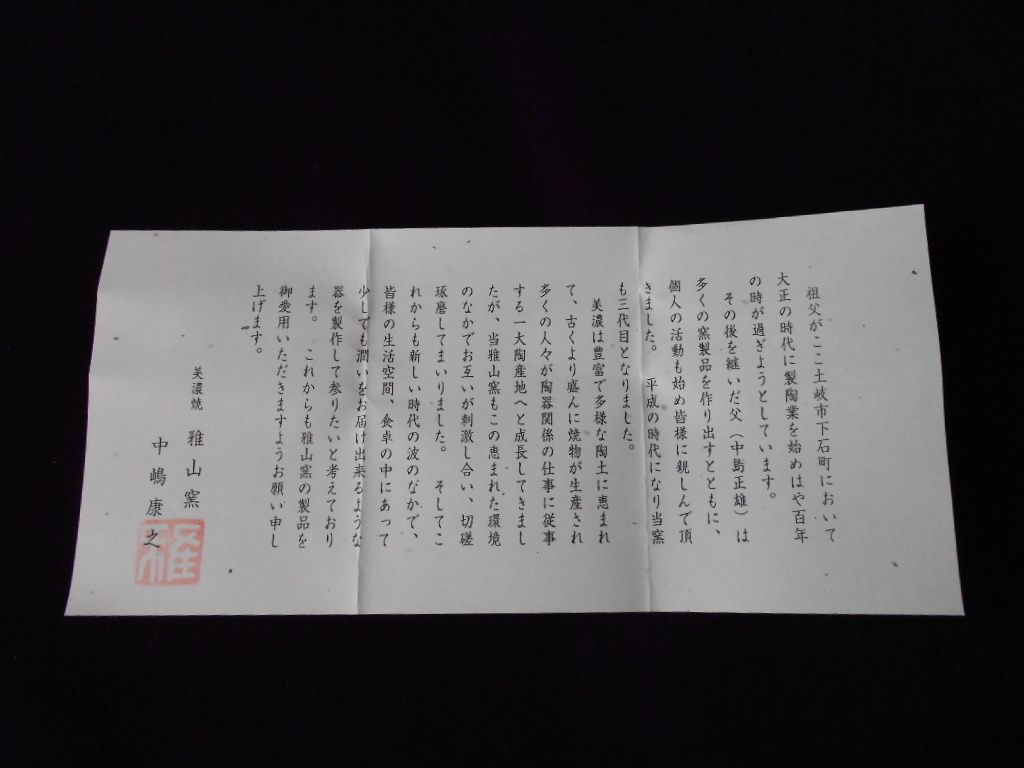 祖父がここ土岐市下石町において
大正の時代に製陶業を始めはや百年
の時が過ぎようとしています。
その後を継いだ父（中島正雄）は
多くの窯製品を作り出すとともに、
個人の活動も始め皆様に親しんで頂
きました。　平成の時代になり当窯
も三代目となりました。
美濃は豊富で多様な陶土に恵まれ
て、古くより盛んに焼物が生産され
多くの人々が陶器関係の仕事に従事
する一大陶産地へと成長してきまし
たが、当雅山窯もこの恵まれた環境
のなかでお互いが刺激し合い、切磋
琢磨してまいりました。　そしてこ
れからも新しい時代の波のなかで、
皆様の生活空間、食卓の中にあって
少しでも潤いをお届け出来るような
器を製作して参りたいと考えており
ます。　これからも雅山窯の製品を
御愛用いただきますようお願い申し
上げます。
美濃焼　雅山窯
中嶋康之
雅